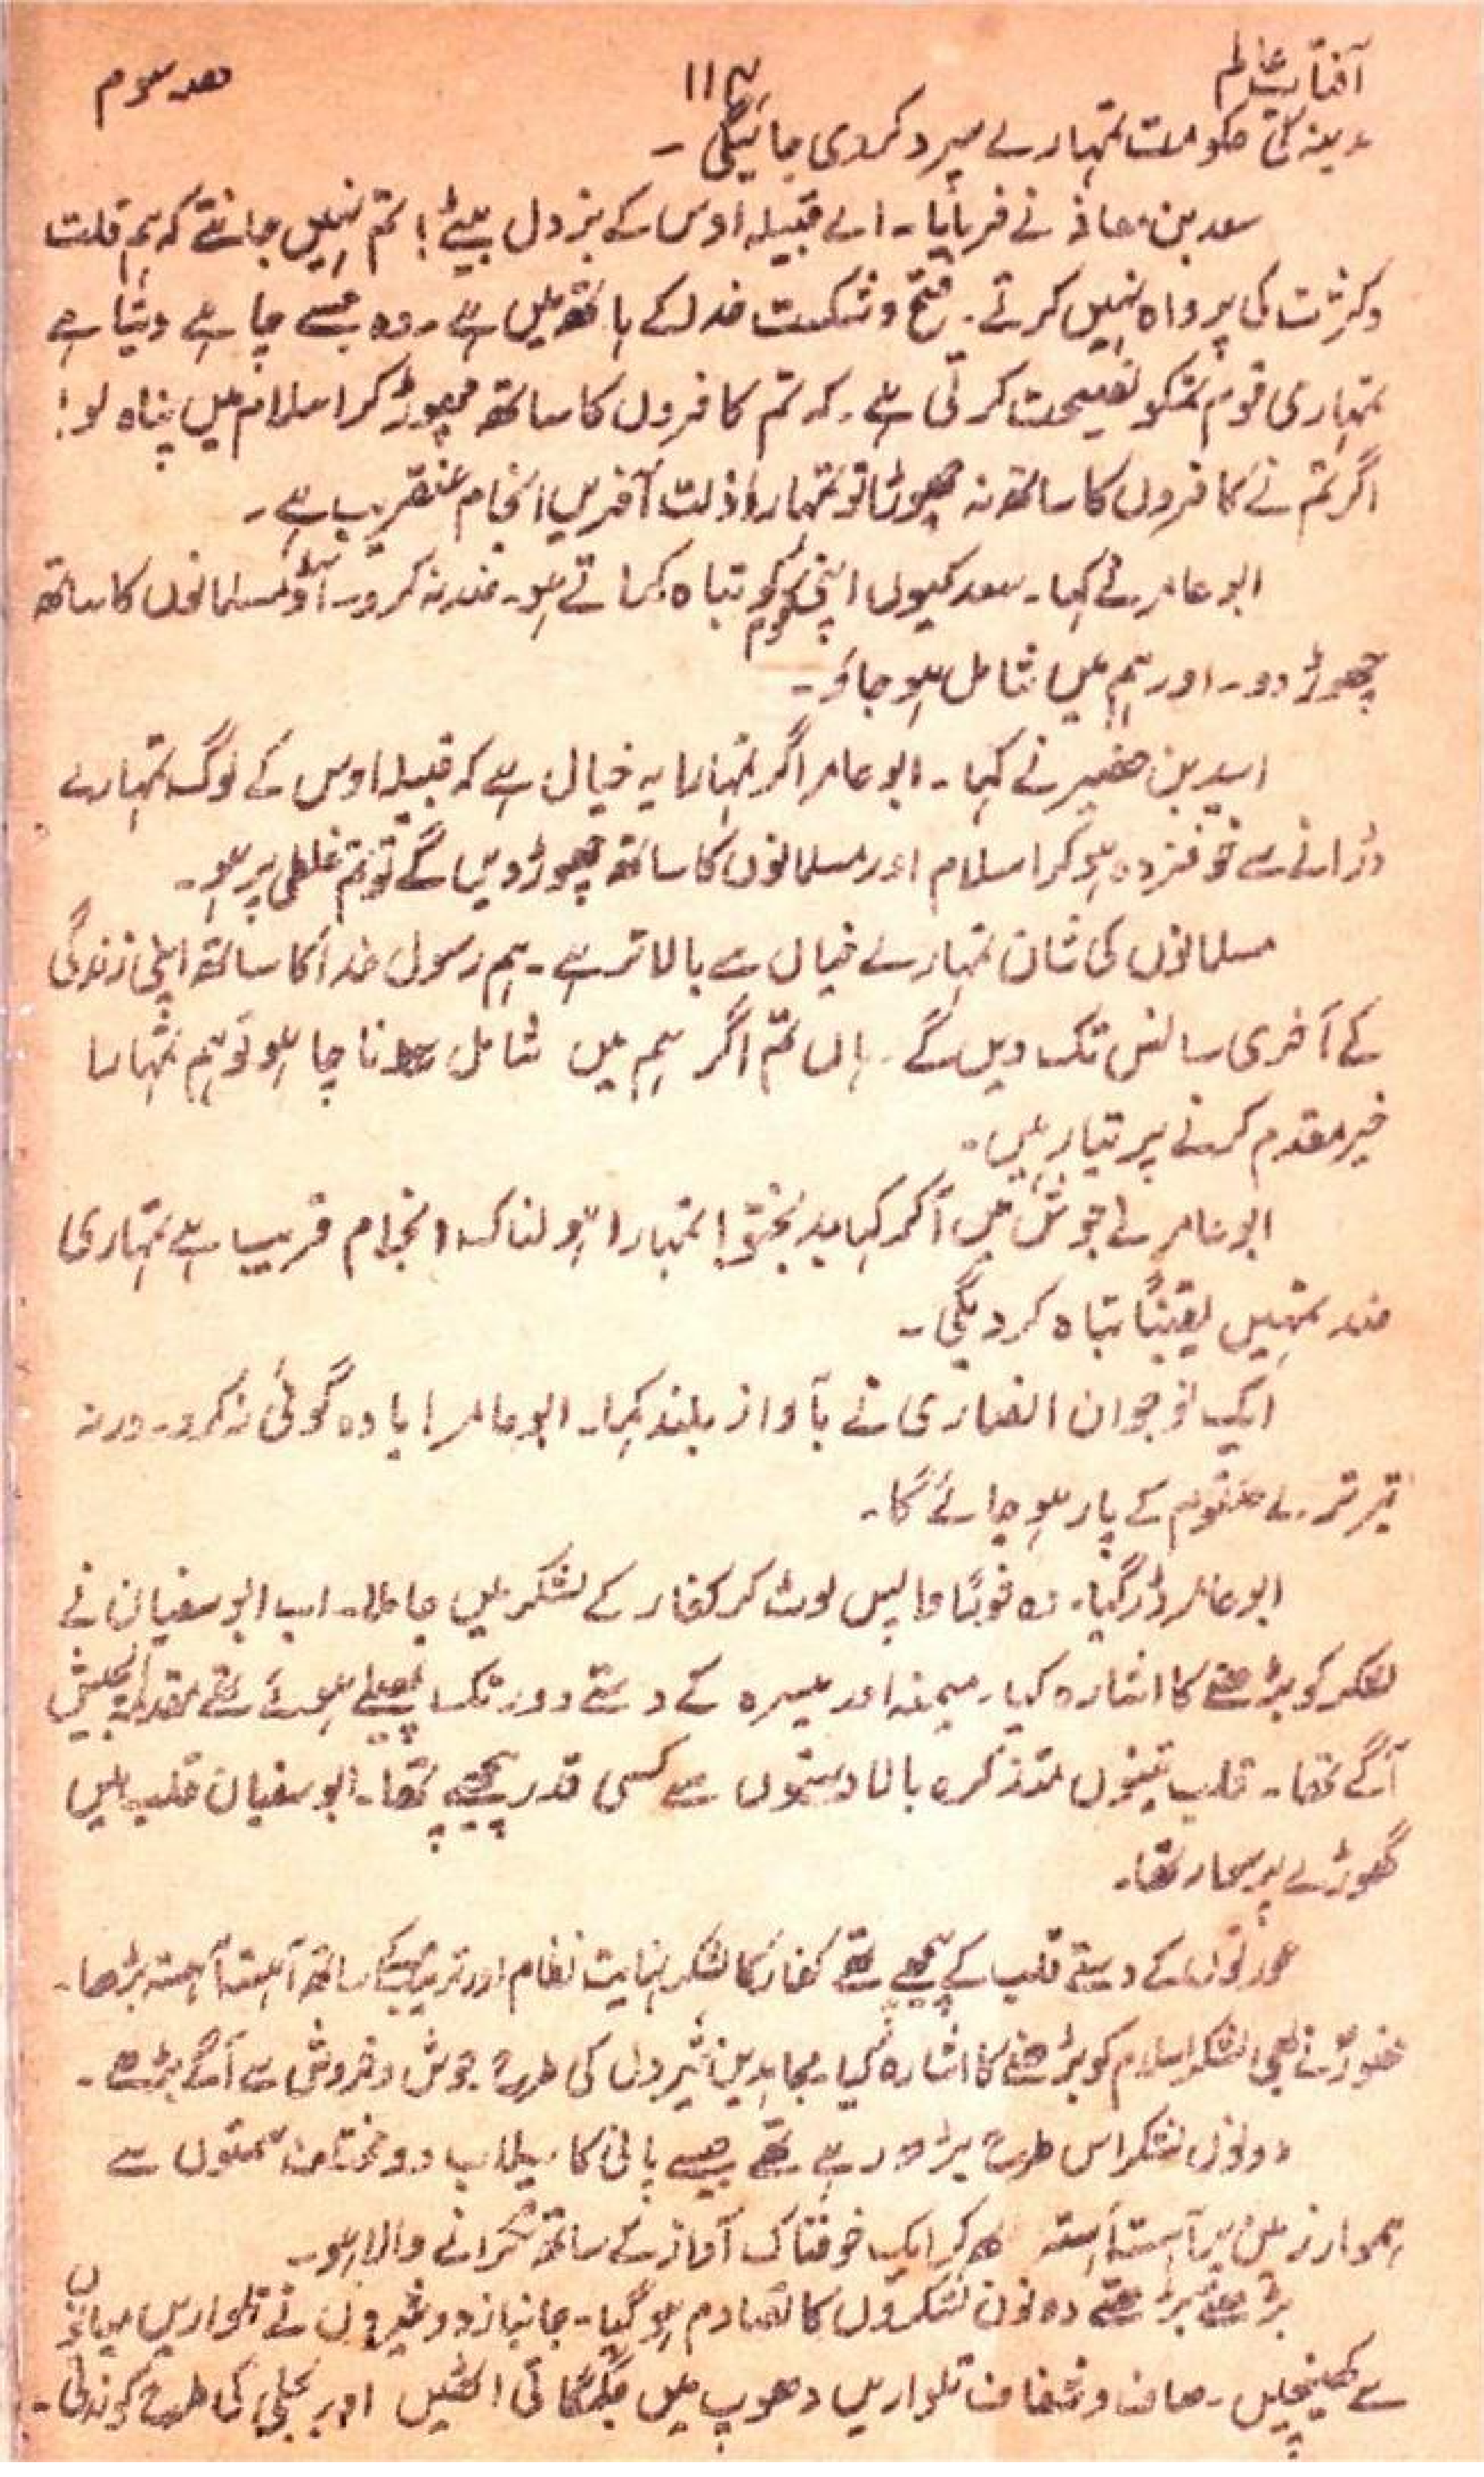 آفتاب عالم ۱۱۴ حصہ سوم
مدینہ کی حکومت تمہارے سپرد کر دی جائیگی ۔
سعد بن معاذ نے فرمایا ۔ اے قبیلہ اوس کے بزدل بیٹے ! تم نہیں جانتے کہ ہم قلت
و کثرت کی پرواہ نہیں کرتے ۔ فتح و شکست خدا کے ہاتھ میں ہے ۔ وہ جسے چاہے دیتا ہے
تمہاری قوم تمکو نصیحت کرتی ہے ۔ کہ تم کافروں کا ساتھ چھوڑ کر اسلام میں پناہ لو !
اگر تم نے کافروں کا ساتھ نہ چھوڑا تو تمہارا ذلت آفریں انجام عنقریب ہے ۔
ابو عامر نے کہا ۔ سعد کیوں اپنی قوم کو تباہ کراتے ہو ۔ ضد نہ کرو ۔ آؤ مسلمانوں کا ساتھ
چھوڑ دو ۔ اور ہم میں شامل ہو جاؤ ۔
اسید بن حضیر نے کہا ۔ ابو عامر اگر تمہارا یہ خیال ہے کہ قبیلہ اوس کے لوگ تمہارے
ڈرانے سے خوفزدہ ہو کر اسلام اور مسلمانوں کا ساتھ چھوڑ دیں گے تو تم غلطی پر ہو ۔
مسلمانوں کی شان تمہارے خیال سے بالاتر ہے ۔ ہم رسول خدا کا ساتھ اپنی زندگی
کے آخری سانس تک دیں گے ۔ ہاں تم اگر ہم میں شامل ہونا چاہو تو ہم تمہارا
خیر مقدم کرنے پر تیار ہیں ۔
ابو عامر نے جوش میں آ کر کہا بد بختو ! تمہارا ہولناک انجام قریب ہے تمہاری
ضد تمہیں یقیناً تباہ کر دیگی ۔
ایک نوجوان انصاری نے بآواز بلند کہا ۔ ابو عامر ! یاوہ گوئی نہ کرو ۔ ورنہ
تیر تیرے حلقوم کے پار ہو جائے گا ۔
ابو عامر ڈر گیا ۔ وہ فوراً واپس لوٹ کر کفار کے لشکر میں جا ملا ۔ اب ابو سفیان نے
لشکر کو بڑھنے کا اشارہ کیا ۔ میمنہ اور میسرہ کے دستے دور تک پھیلے ہوئے تھے مقدمۃ الجیش
آگے تھا ۔ قلب تینوں متذکرہ بالا دستوں سے کسی قدر پیچھے تھا ۔ ابو سفیان قلب میں
گھوڑے پر سوار تھا ۔
عورتوں کے دستے قلب کے پیچھے تھے کفار کا لشکر نہایت نظام اور ترتیب کے ساتھ آہستہ آہستہ بڑھا ۔
حضورؐ نے بھی لشکر اسلام کو بڑھنے کا اشارہ کیا ۔ مجاہدین شیروں کی طرح جوش و خروش سے آگے بڑھے ۔
دونوں لشکر اس طرح بڑھ رہے تھے جیسے پانی کا سیلاب دو مختلف سمتوں سے
ہموار زمین پر آہستہ آہستہ بہ کر ایک خوفناک آواز کے ساتھ ٹکرانے والا ہو ۔
بڑھتے بڑھتے دونوں لشکروں کا تصادم ہو گیا ۔ جانباز و نے تلواریں میانوں
سے کھینچیں ۔ صاف و شفاف تلواریں دھوپ میں جگمگاتی اٹھیں اور بجلی کی طرح کوندتی ۔